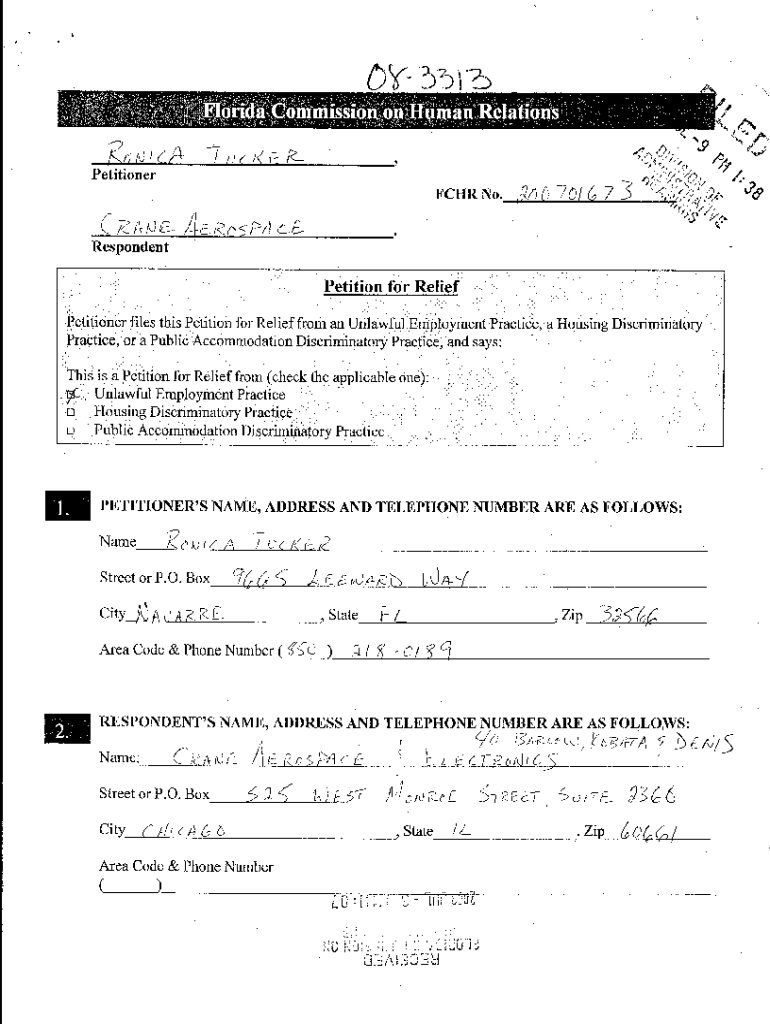 08-3313
Florida Commission on Human Relations
FILED
-9 PM 1:38
DIVISION OF
ADMINISTRATIVE
HEARINGS
RONICA TUCKER,
Petitioner
FCHR No. 200701673
CRANE AEROSPACE,
Respondent
Petition for Relief
Petitioner files this Petition for Relief from an Unlawful Employment Practice, a Housing Discriminatory
Practice, or a Public Accommodation Discriminatory Practice, and says:
This is a Petition for Relief from (check the applicable one):
Unlawful Employment Practice
Housing Discriminatory Practice
Public Accommodation Discriminatory Practice
1. PETITIONER'S NAME, ADDRESS AND TELEPHONE NUMBER ARE AS FOLLOWS:
Name RONICA TUCKER
Street or P.O. Box 9665 LEEWARD WAY
City NAVARRE, State FL, Zip 32566
Area Code & Phone Number (850) 218-0189
2. RESPONDENT'S NAME, ADDRESS AND TELEPHONE NUMBER ARE AS FOLLOWS:
C/O BARLOW, KOBATA & DENIS
Name: CRANE AEROSPACE & ELECTRONICS
Street or P.O. Box 525 WEST MONROE STREET, SUITE 2360
City CHICAGO, State IL, Zip 60661
Area Code & Phone Number
( )
RECEIVED